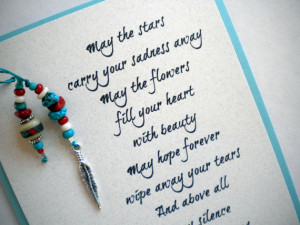 May the stars
carry your sadness away
May the flowers
fill your heart
with beauty
May hope forever
wipe away your tears
And above all
silence